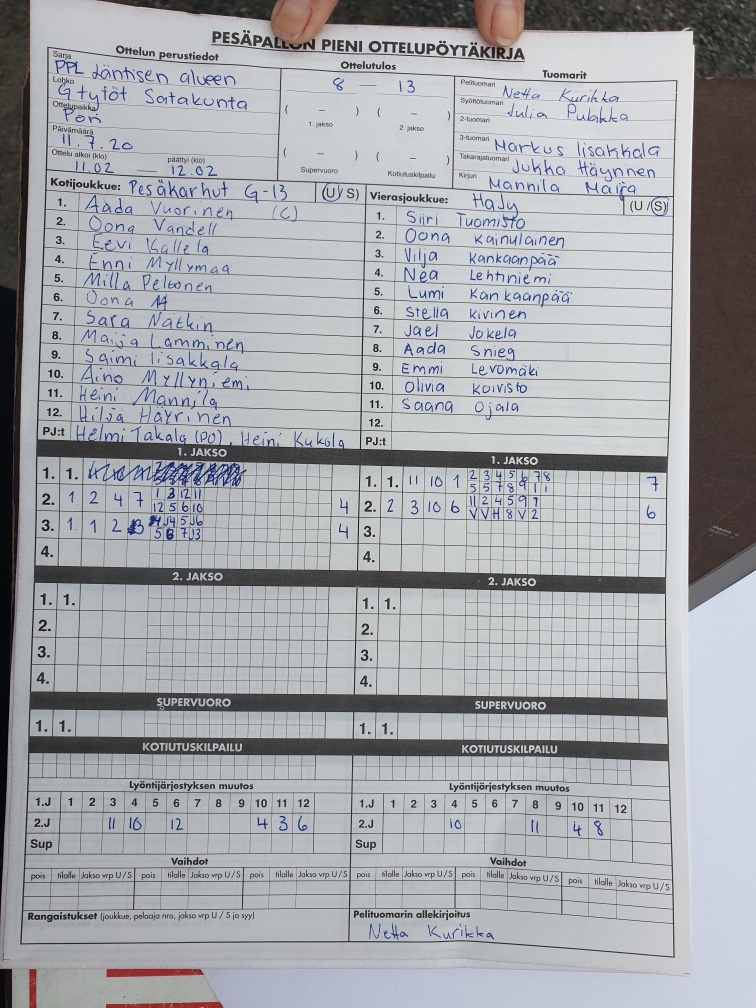 PESÄPALLON PIENI OTTELUPÖYTÄKIRJA
Ottelun perustiedot
Sarja PPL Läntisen alueen
Lohko G tytöt Satakunta
Ottelupaikka Pori
Päivämäärä 11.7.20
Ottelu alkoi (klo) päättyi (klo)
11.02 — 12.02
Ottelutulos
8 — 13
( – ) ( – )
1. jakso 2. jakso
( – ) ( – )
Supervuoro Kotiutuskilpailu
Tuomarit
Pelituomari Netta Kurikka
Syöttötuomari Julia Pulakka
2-tuomari
3-tuomari Markus Iisakkala
Takarajatuomari Jukka Häyrinen
Kirjuri Mannila Marja
Kotijoukkue: Pesäkarhut G-13 (U/S)
1. Aada Vuorinen (C)
2. Oona Vandell
3. Eevi Kallela
4. Enni Myllymaa
5. Milla Peltonen
6. Oona
7. Sara Nätkin
8. Maija Lamminen
9. Saimi Iisakkala
10. Aino Myllyniemi
11. Heini Mannila
12. Hilja Häyrinen
PJ:t Helmi Takala (PO), Heini Kukola
Vierasjoukkue: HaJy (U/S)
1. Siiri Tuomisto
2. Oona Kainulainen
3. Vilja Kankaanpää
4. Nea Lehtiniemi
5. Lumi Kankaanpää
6. Stella Kivinen
7. Jael Jokela
8. Aada Snieg
9. Emmi Levomäki
10. Olivia Koivisto
11. Saana Ojala
12.
PJ:t
1. JAKSO
1. 1.
2. 1 2 4 7 4
3. 1. 1 2 4
4.
1. JAKSO
1. 1. 11 10 1 7
2. 2 3 10 6 6
3.
4.
2. JAKSO
1. 1.
2.
3.
4.
2. JAKSO
1. 1.
2.
3.
4.
SUPERVUORO
1. 1.
SUPERVUORO
1. 1.
KOTIUTUSKILPAILU
KOTIUTUSKILPAILU
Lyöntijärjestyksen muutos
1.J 1 2 3 4 5 6 7 8 9 10 11 12
2.J 11 10 12 4 3 6
Sup
Lyöntijärjestyksen muutos
1.J 1 2 3 4 5 6 7 8 9 10 11 12
2.J 10 11 4 8
Sup
Vaihdot
pois tilalle Jakso vrp U/S pois tilalle Jakso vrp U/S pois tilalle Jakso vrp U/S
Vaihdot
pois tilalle Jakso vrp U/S pois tilalle Jakso vrp U/S pois tilalle Jakso vrp U/S
Rangaistukset (joukkue, pelaaja nro, jakso vrp U / S ja syy)
Pelituomarin allekirjoitus
Netta Kurikka